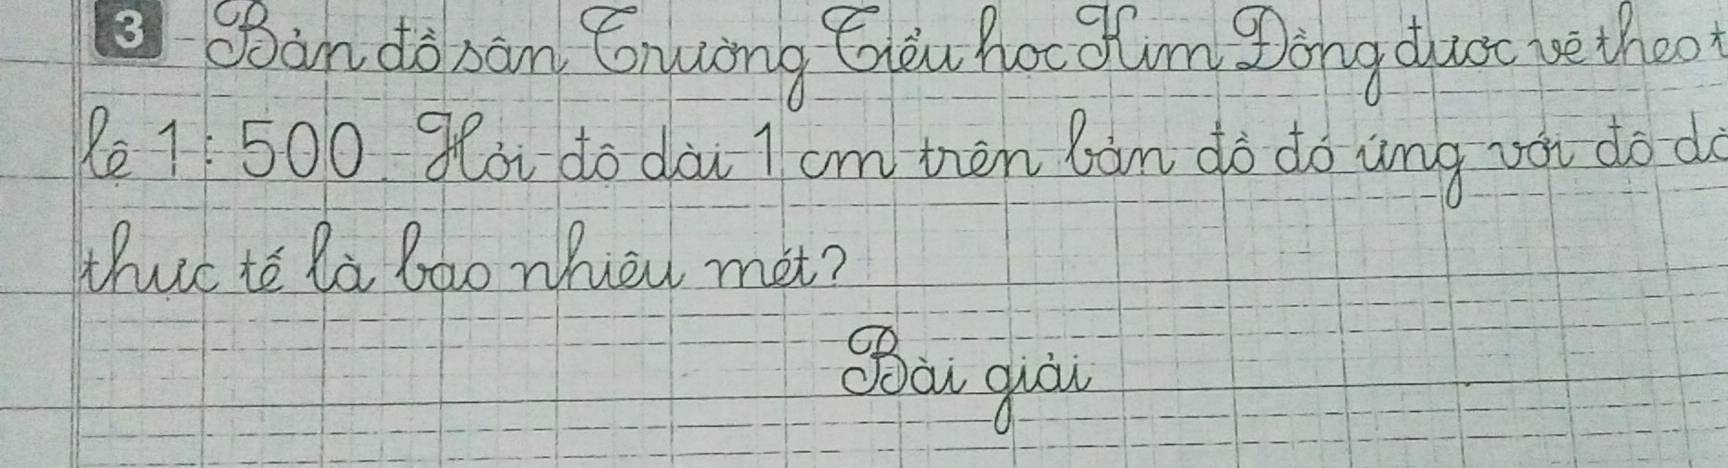 3 Bản đồ sân Trường Tiểu học Kim Đồng được vẽ theo t
lệ 1 : 500. Hỏi độ dài 1 cm trên bản đồ đó ứng với độ dà
thực tế là bao nhiêu mét?
Bài giải